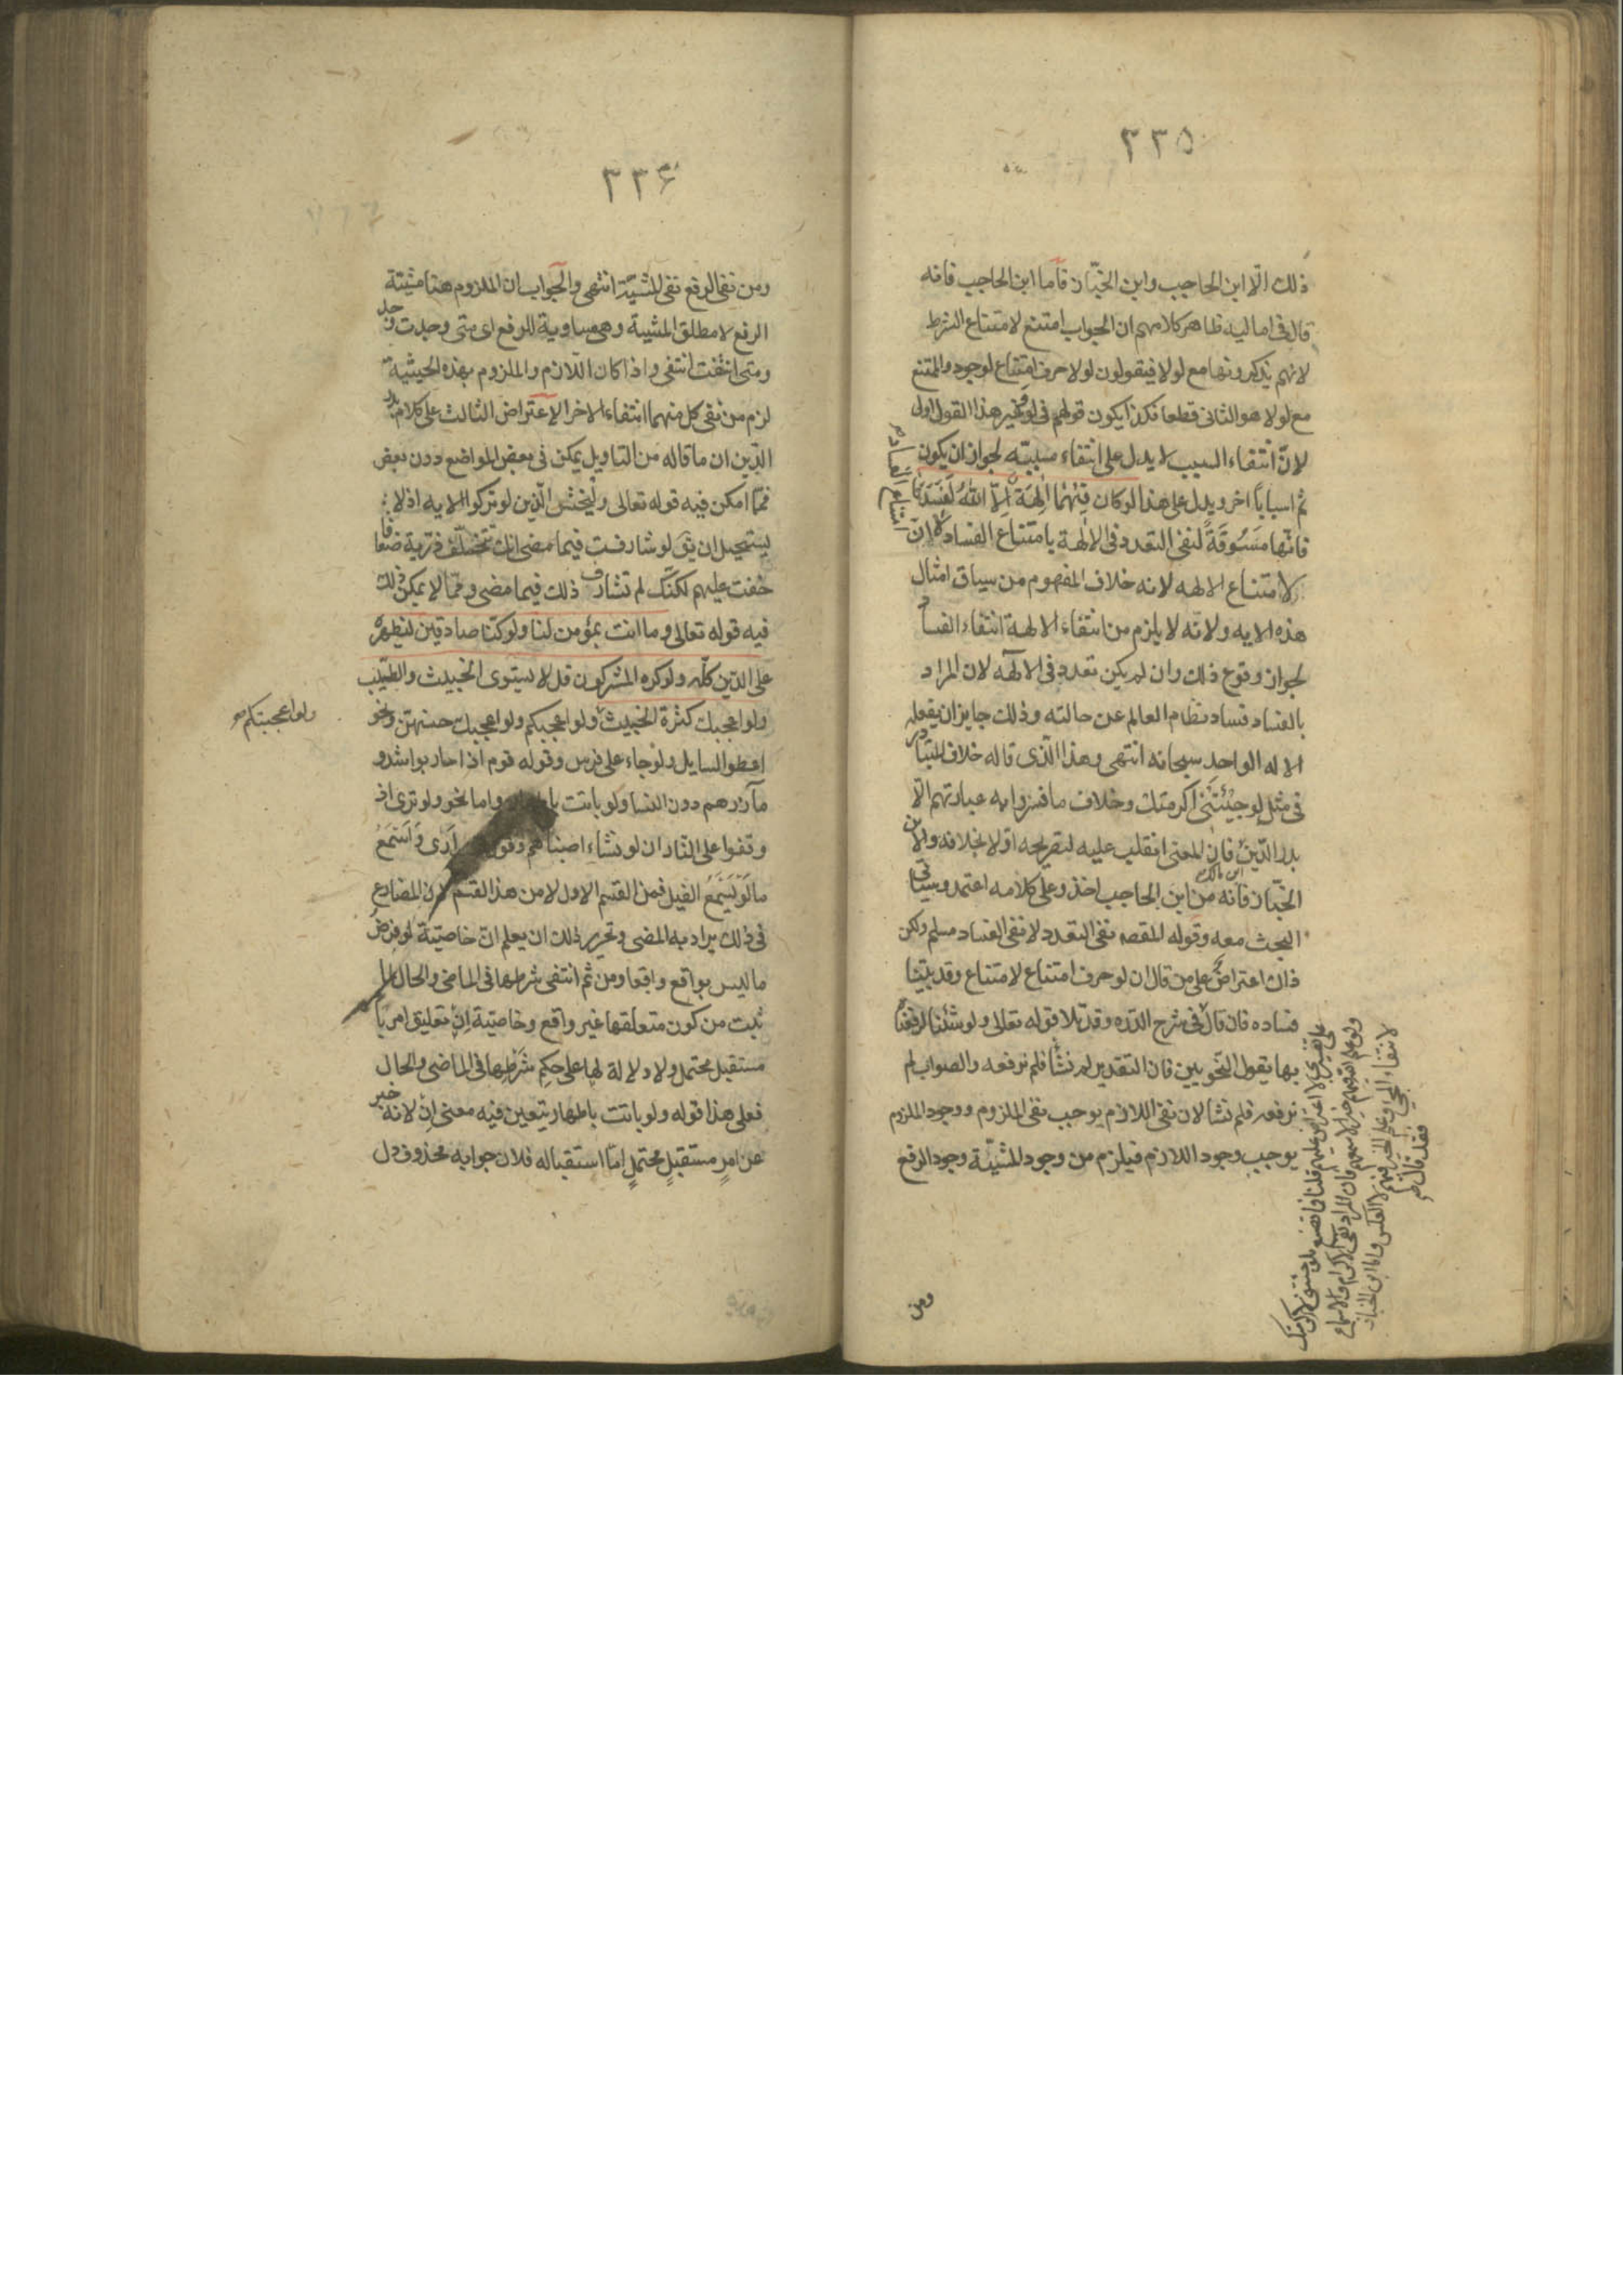 ٣٣٥
ذلك الّا ابن الحاجب وابن الخبّاز فاما ابن الحاجب فانه
قال فى اماليه ظاهر كلامهم ان الجواب امتنع لامتناع الشرط
لانهم يذكرونها مع لولا فيقولون لولا حرف امتناع لوجود والممتنع
مع لولا هو الثانى قطعا فكذا يكون قولهم فى لو وغير هذا القول اولى
لانّ انتفاء السبب لا يدل على انتفاء مسببه لجواز ان يكون
ثم اسباباً اخر ويدل على هذا لو كان فِيْهُمٰا اٰلِهَة اِلاّ اللّٰهُ لَفَسَدَتٰا
فانّها مَسُوقَةً لنفى التعدد فى الالهة بامتناع الفساد لا ان
امتناع الفساد
لامتناع الالهه لانه خلاف المفهوم من سياق امثال
هذه الايه ولانّه لا يلزم من انتفاء الالهة انتفاء الفساد
لجواز وقوع ذلك وان لم يكن تعدد فى الالٓهه لان المراد
بالفساد فساد نظام العالم عن حالته وذلك جايز ان يفعله
الاله الواحد سبحانه انتهى وهذا الّذى قاله خلاف المتبادر
فى مثل لو جِئْتَنى اكرمتك وخلاف ما فسّروا به عبارتهم الّا
بدر الدّين فان المعنى انقلب عليه لتصريحه اوّلا بخلافه والا ابن
ابن مالك
الخبّاز فانه من ابن الحاجب اخذ وعلى كلامه اعتمد وسياتى
البحث معه وقوله المقصه نفى التعدد لا نفى الفساد مسلم ولكن
ذاك اعتراض على من قال ان لو حرف امتناع لامتناع وقد بيّنا
فساده فان قال
على تفسيرى لا اعتراض عليهم قلنا فما تصنع بلو جئتنى لاكرمتك
ولو علم الله فيهم خيرا لاسمعهم فان المراد نفى الاكرام والاسماع
لانتفاء المجئ وعلم الخير فيهم لا العكس واما ابن الخباز
فقد قال
فى شرح الدّره وقد تلا قوله تعالى ولو شئنا لرفعناه
بها يقول النّحويين فان التقدير لم نشأ فلم نرفعه والصواب لم
نرفعه فلم نشا لان نفى اللازم يوجب نفى الملزوم ووجود الملزوم
يوجب وجود اللازم فيلزم من وجود المشيّة وجود الرفع
ومن
٣٣۶
ومن نفى الرفع نفى المشيّة انتهى والجواب ان الملزوم هنا مشيّة
الرفع لا مطلق المشية وهى مساوية للرفع اى متى وجدت وجد
ومتى انتفت انتفى واذا كان اللّازم والملزوم بهذه الحيثية
لزم من نفى كل منهما انتفاء الاخر الاعتراض الثالث على كلام بدر
الدّين ان ما قاله من التاويل يمكن فى بعض المواضع دون بعض
فممّا امكن فيه قوله تعالى وليخش الّذين لو تركوا الايه اذ لا
يستحيل ان يق لو شارفت فيما مضى انك تخلّف ذرية ضعافا
خفت عليهم لكنّك لم تشارف ذلك فيما مضى وممّا لا يمكن ذلك
فيه قوله تعالى وما انت بمؤمن لنا ولو كنّا صادقين ليظهره
على الدّين كلّه ولو كره المشركون قل لا يستوى الخبيث والطيّب
ولو اعجبك كثرة الخبيث ولو اعجبكم ولو اعجبك حسنهنّ ونحو
ولو اعجبتكم
اعطوا السايل ولو جاء على فرس وقوله قوم اذا حاربوا شدو
مآزرهم دون النسا ولو باتت باطهار واما نحو ولو ترى اذ
وقفوا على النّار ان لو نشاء اصبناهم وقول ارَى وَاَسْمَعُ
ما لَوْ يَسْمَعُ الفيل فمن القسم الاول لا من هذا القسم لان المضارع
فى ذلك يراد به المضى وتحرير ذلك ان يعلم انّ خاصيّة لو فرض
ما ليس بواقع واقعا ومن ثم انتفى شرطها فى الماضى والحال لما
ثبت من كون متعلقها غير واقع وخاصيّة اِنْ تعليق امر با
مستقبل محتمل ولا دلالة لها على حكم شَرْطِها فى الماضى والحال
فعلى هذا قوله ولو باتت باطهار يتعين فيه معنى اِنْ لانه خبر
عن امرٍ مستقبلٍ محتملٍ امّا استقباله فلان جوابه محذوف دل